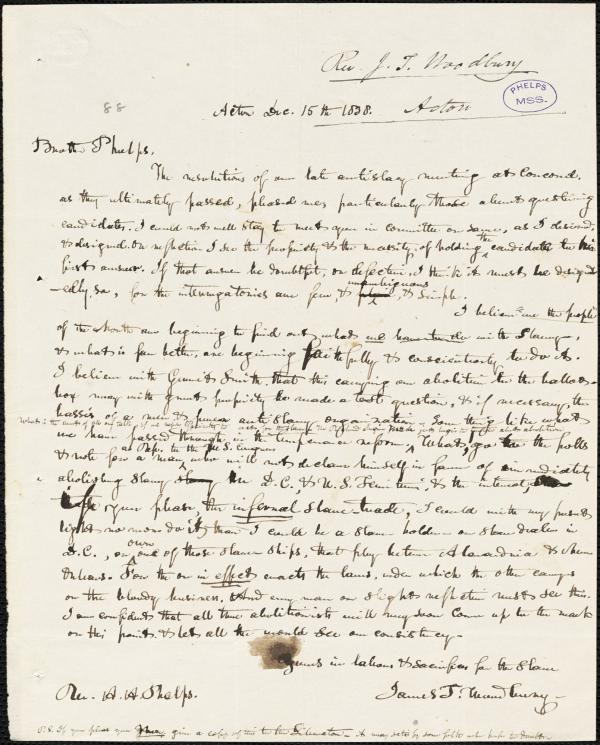 Rev. J. T. Woodbury
Acton
PHELPS
MSS.
88
Acton Dec. 15th 1838.
Brother Phelps.
The resolutions of our late antislavery meeting at Concord,
as they ultimately passed, pleased me, particularly those about questioning
candidates. I could not well stay to meet you in committee on same, as I desired,
& designed. On reflection I see the propriety & the necessity, of holding the candidate to his
first answer. If that answer be doubtful, or defective, I think it must be
so, for the interrogatories are few, & unambiguous, & simple.
I believe we the people
of the North are beginning to find out, what we have to do with Slavery,
& what is far better, are beginning faithfully & conscientiously to do it.
I believe with Gerrit Smith, that this carrying our abolition to the ballot-
box may with great propriety be made a test question, & if necessary, the
basis of a new & purer anti Slavery organization. Something like what
we have passed through in the temperance reform. What, go to the polls
& vote for a man, as Rep. to the U.S. Congress who will not declare himself in favor of immediately
abolishing Slavery in D.C., & U.S. Territories, & the internal,
or if you please, the infernal Slave trade, I could with my present
light no more do it, than I could be a Slave holder or Slave dealer in
D.C., or own one of those Slave Ships, that ply between Alexandria & New
Orleans. For the one in effect enacts the laws, under which the other carries
on the bloody business. And every man on slight reflection must see this.
I am confident that all true abolitionists will very soon come up to the mark
on this point, & let all the world see our consistency.
Yours in labors & sacrifices for the Slave
Rev. A. A. Phelps.
James T. Woodbury
P.S. If you please you may give a copy of this to the Liberator